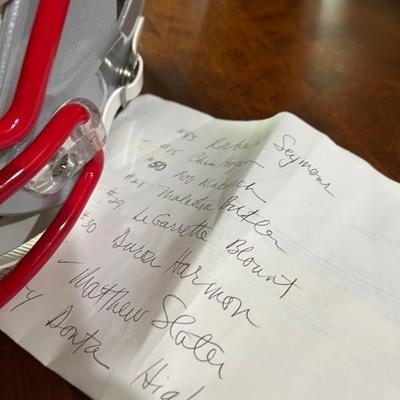 #93 Richard Seymour
#15 Chris Hogan
#50 Rob Ninkovich
#21 Malcolm Butler
#29 LeGarrette Blount
#30 Duron Harmon
Matthew Slater
Donta High